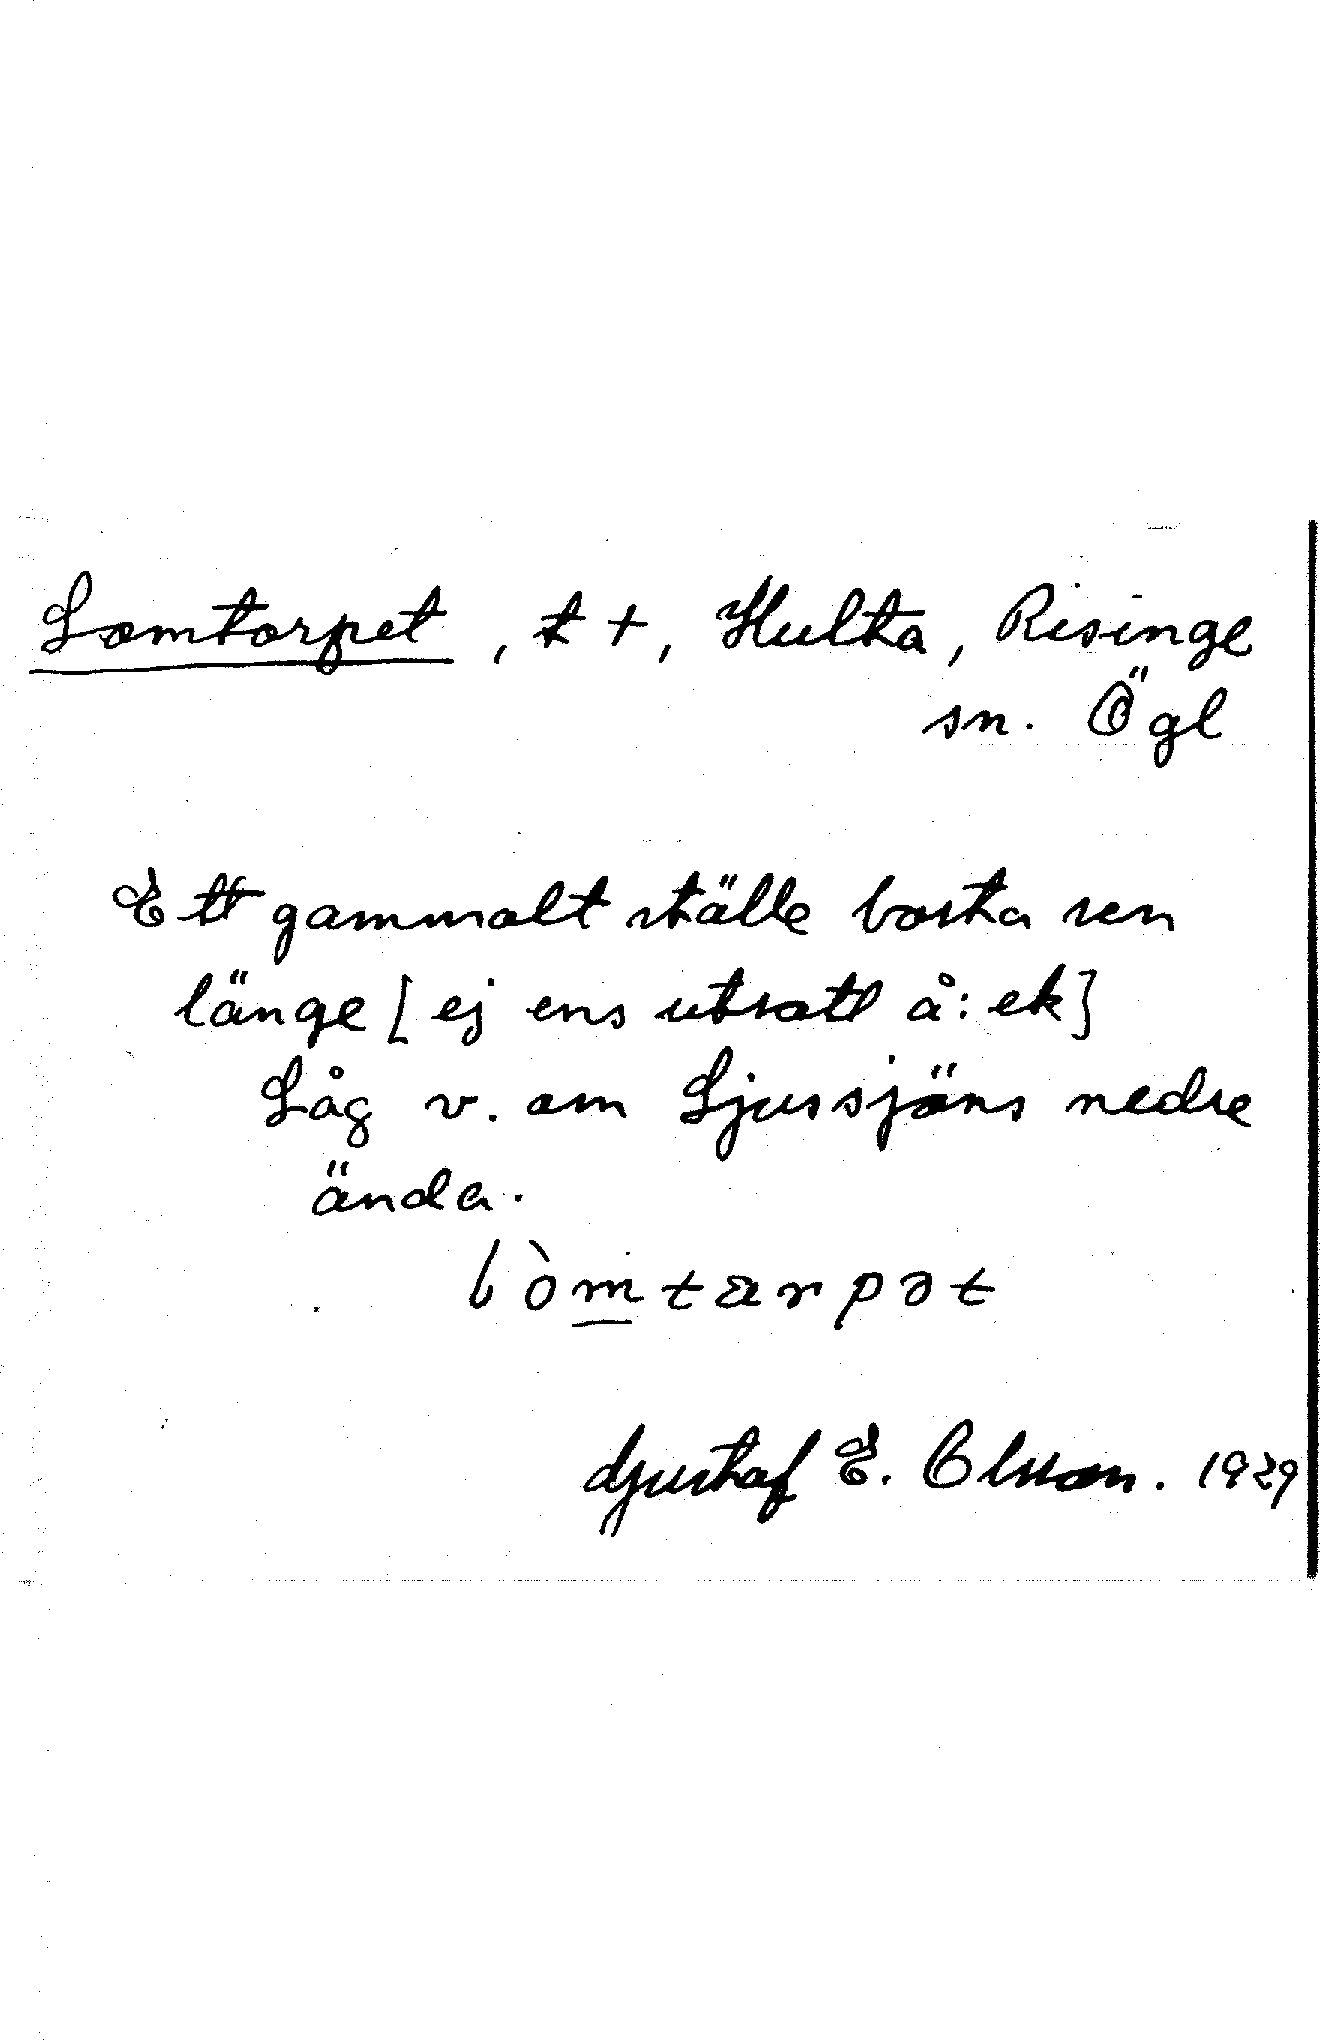 Lomtorpet, t +, Hulta, Risinge
sn. Ögl
Ett gammalt ställe borta sen
länge [ej ens utsatt å: ek]
Låg v. om Ljussjöns nedre
ända.
lòmtarpət
Gustaf E. Olsson. 1929